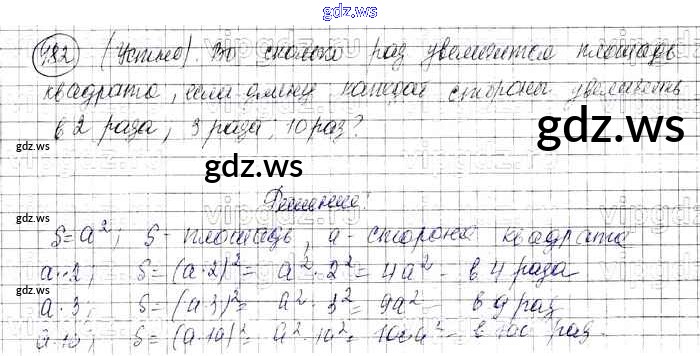 gdz.ws
782 (Устно). Во сколько раз увеличится площадь
квадрата, если длину каждой стороны увеличить
в 2 раза, 3 раза, 10 раз?
gdz.ws
gdz.ws
gdz.ws
Решение:
gdz.ws
S=a²; S- площадь, a- сторона квадрата
a·2; S=(a·2)²= a²·2²= 4a²- в 4 раза
gdz.ws
gdz.ws
a·3; S=(a·3)²= a²·3²= 9a²- в 9 раз
a·10; S=(a·10)²= a²·10²= 100a²- в 100 раз.
gdz.ws